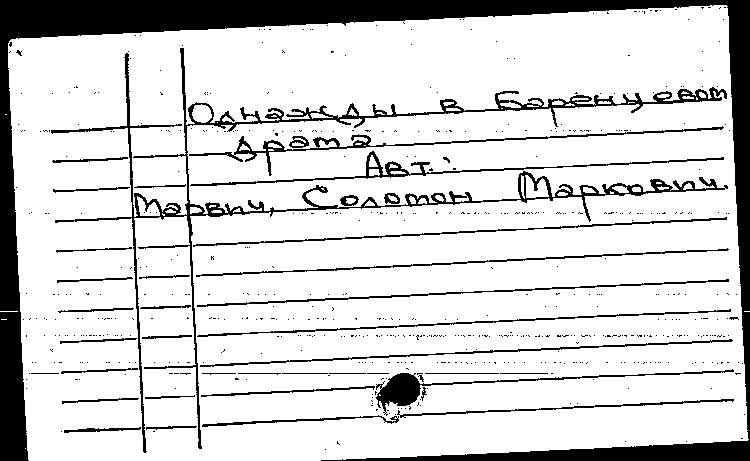 Однажды в Баренцевом
драма.
Авт.:
Марвич, Соломон Маркович.